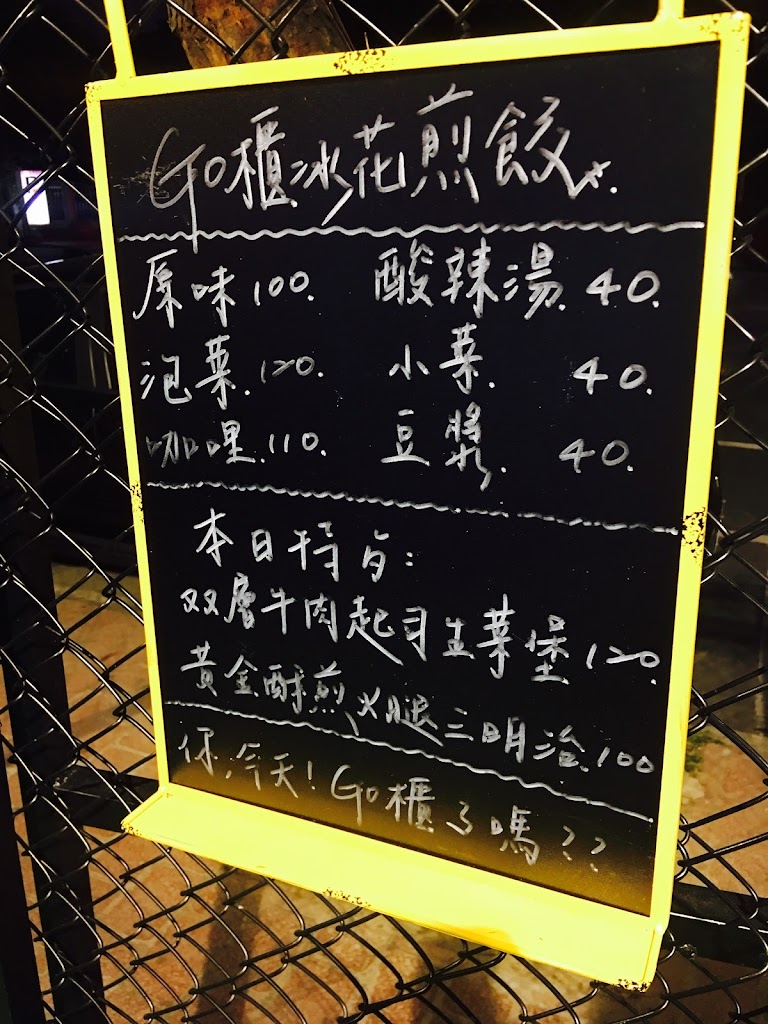 Go櫃冰花煎餃
原味100. 酸辣湯.40.
泡菜.120. 小菜. 40.
咖哩.110. 豆漿. 40.
本日特旨:
双層牛肉起司生菜堡120.
黃金酥煎火腿三明治.100
你,今天!Go櫃了嗎??